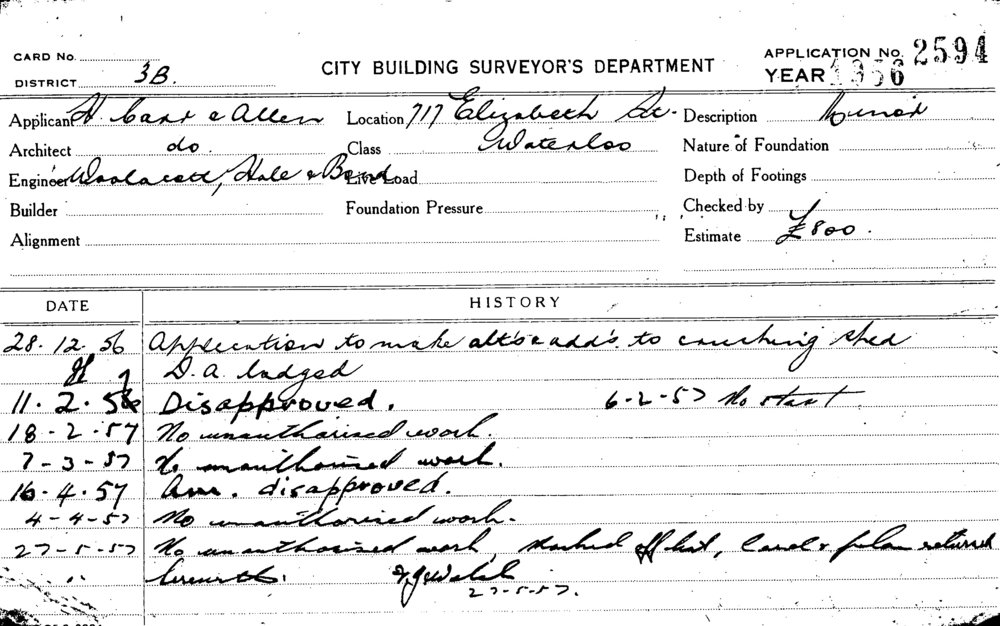 CARD No.
DISTRICT 3B.
CITY BUILDING SURVEYOR'S DEPARTMENT
APPLICATION No. 2594
YEAR 1956
Applicant H. Carr & Allen
Location 717 Elizabeth St.
Description Minor
Architect do.
Class Waterloo
Nature of Foundation
Engineer Woolacott, Hale & Bond
Live Load
Depth of Footings
Builder
Foundation Pressure
Checked by
Alignment
Estimate £800.
DATE HISTORY
28.12.56 Application to make alt's & add's. to crushing shed
D.A. lodged
11.2.56 Disapproved. 6-2-57 No start
18-2-57 No unauthorised work.
7-3-57 No unauthorised work.
16.4.57 Am. disapproved.
4-4-57 No unauthorised work.
27-5-57 No unauthorised work, marked off list, card & plan returned
" herewith.
27-5-57.